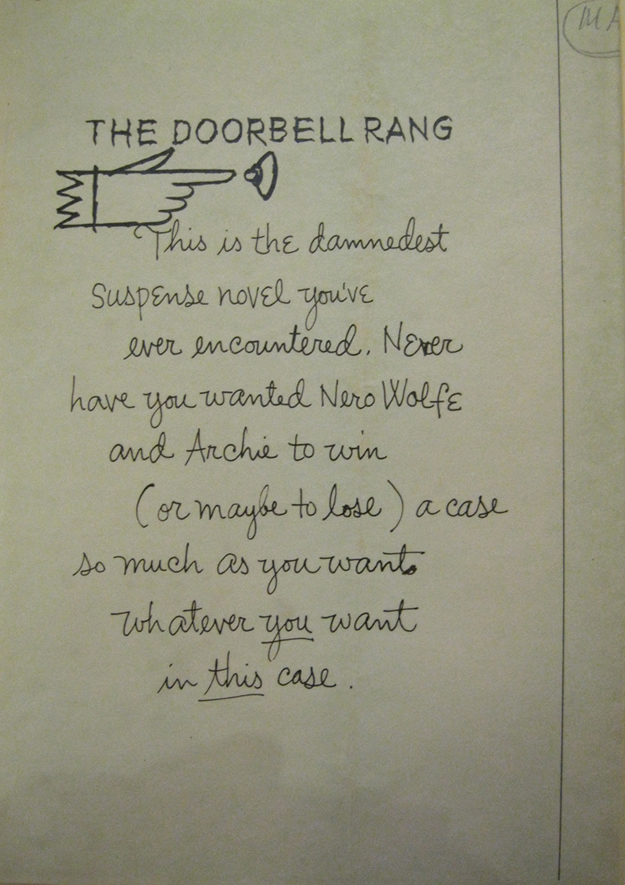 MA
THE DOORBELL RANG
This is the damnedest
suspense novel you've
ever encountered. Never
have you wanted Nero Wolfe
and Archie to win
(or maybe to lose) a case
so much as you want
whatever you want
in this case.